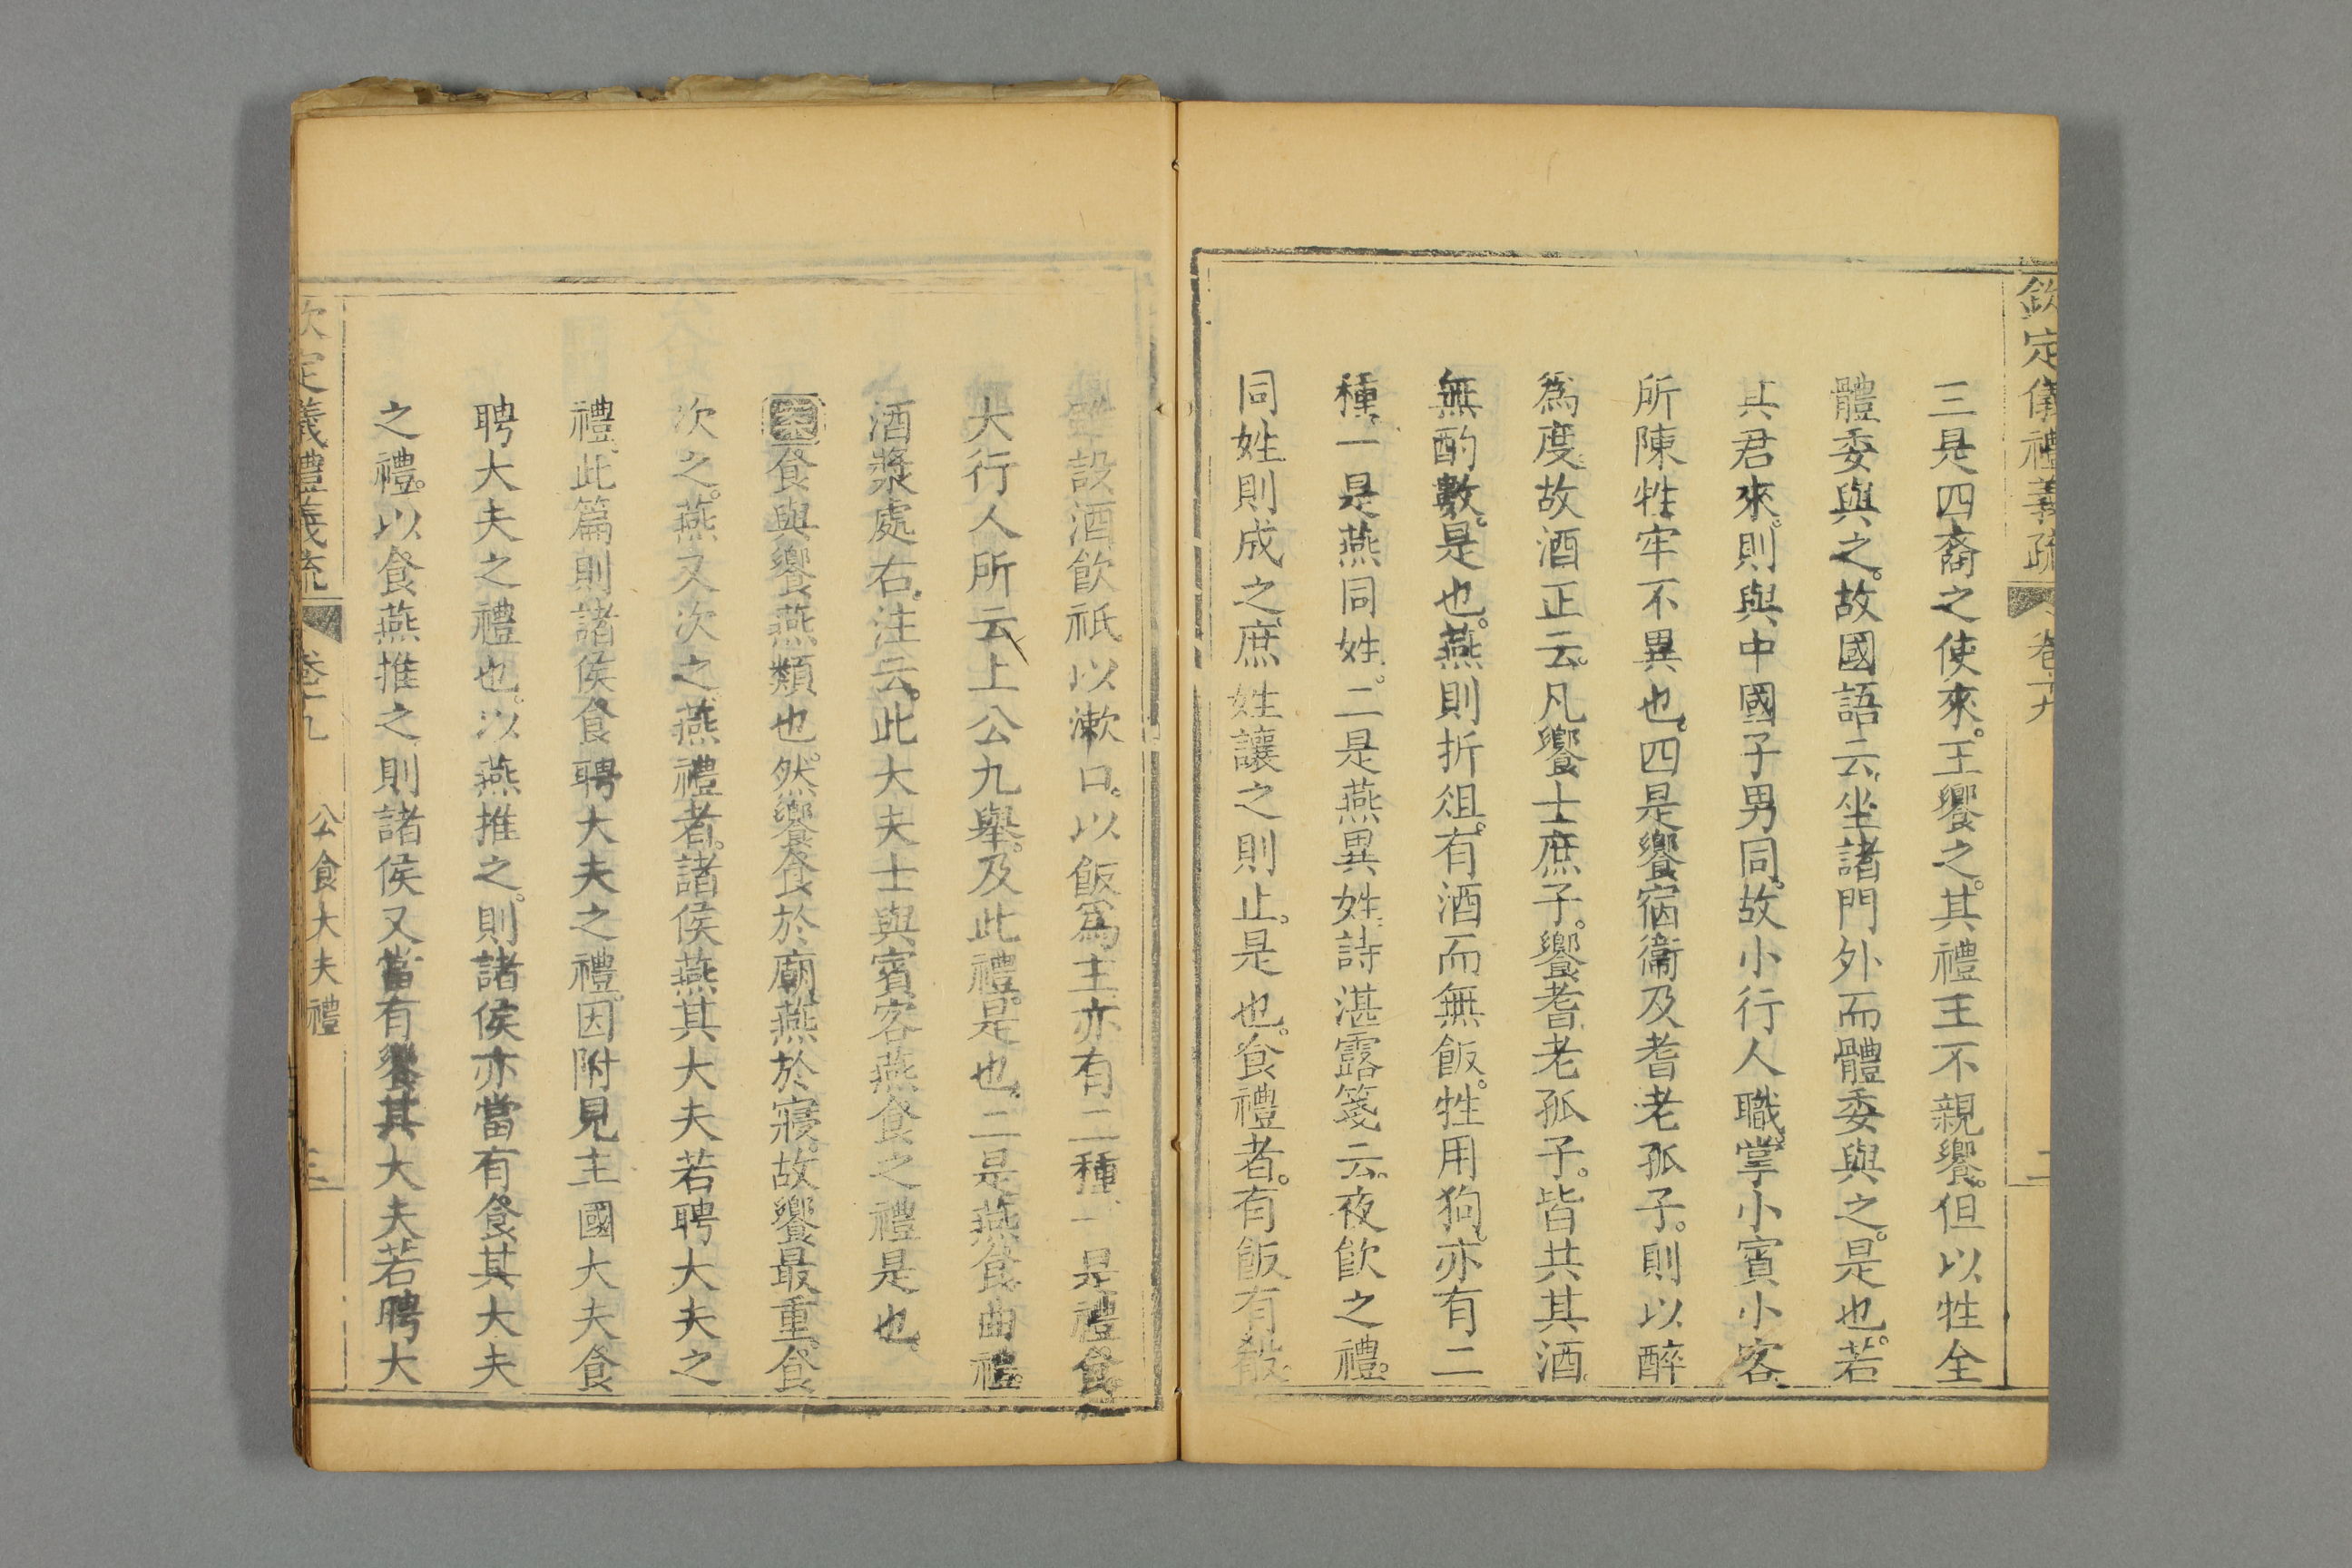 欽定儀禮義疏 卷十九 二
三是四裔之使來。王饗之。其禮王不親饗。但以牲全
體委與之。故國語云、坐諸門外而體委與之。是也。若
其君來。則與中國子男同。故小行人職掌小賓小客
所陳牲牢不異也。四是饗宿衞及耆老孤子。則以醉
爲度。故酒正云。凡饗士庶子。饗耆老孤子。皆共其酒
無酌數。是也。燕則折俎。有酒而無飯。牲用狗。亦有二
種。一是燕同姓。二是燕異姓。詩湛露箋云。夜飲之禮。
同姓則成之。庶姓讓之則止。是也。食禮者。有飯有殽。
雖設酒飲祇以漱口。以飯爲主。亦有二種。一是禮食。
大行人所云上公九舉。及此禮。是也。二是燕食。曲禮。
酒漿處右。注云。此大夫士與賓客燕食之禮是也。
案食與饗燕類也。然饗食於廟。燕於寢。故饗最重。食
次之。燕又次之。燕禮者。諸侯燕其大夫若聘大夫之
禮。此篇則諸侯食聘大夫之禮。因附見主國大夫食
聘大夫之禮也。以燕推之。則諸侯亦當有食其大夫
之禮。以食燕推之則諸侯又當有饗其大夫若聘大
欽定儀禮義疏 卷十九 公食大夫禮 三